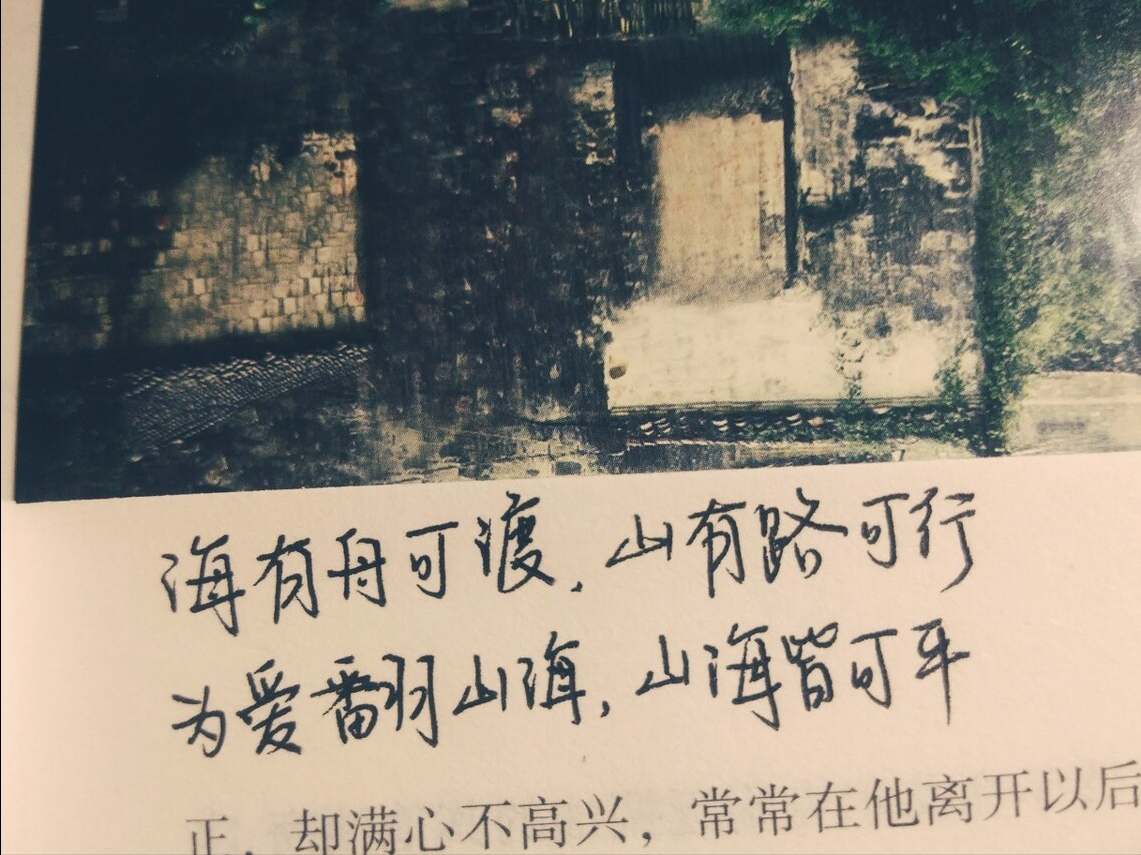 海有舟可渡，山有路可行
为爱翻山海，山海皆可平
正，却满心不高兴，常常在他离开以后